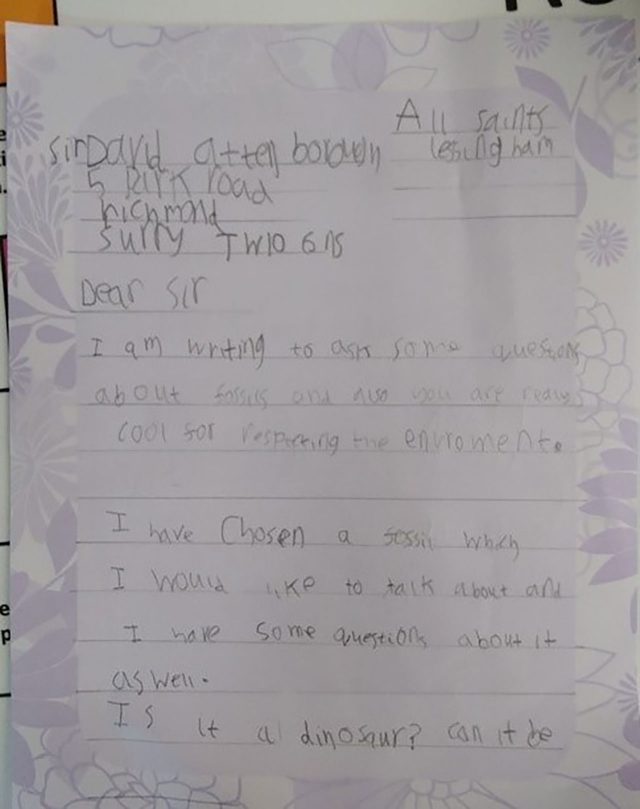 All saints
lesingham
sirDavid attenborough
5 park road
richmond
surry TW10 6NS
Dear sir
I am writing to ask some questions
about fossils and also you are really
cool for respecting the enviroment.
I have Chosen a fossil which
I would like to talk about and
I have some questions about it
as well.
Is it a dinosaur? can it be